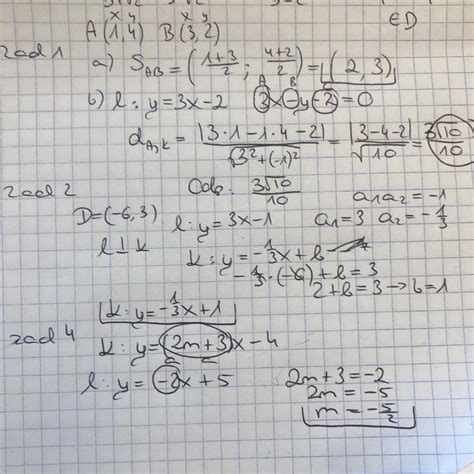 ∈D
x y x y
A(1,4) B(3,2)
zad 1
a) S_AB = (1+3/2 ; 4+2/2) = (2,3)
A B
b) l: y=3x-2 3x-y-2=0
d_A,k = |3·1-1·4-2|/√(3²+(-1)²) = |3-4-2|/√10 = 3√10/10
Odp. 3√10/10
zad 2
D=(-6,3) l: y=3x-1 a₁a₂=-1
l⊥k a₁=3 a₂=-1/3
k: y=-1/3x+b
-1/3·(-6)+b=3
2+b=3→b=1
k: y=-1/3x+1
zad 4
k: y=(2m+3)x-4
l: y=-2x+5 2m+3=-2
2m=-5
m=-5/2